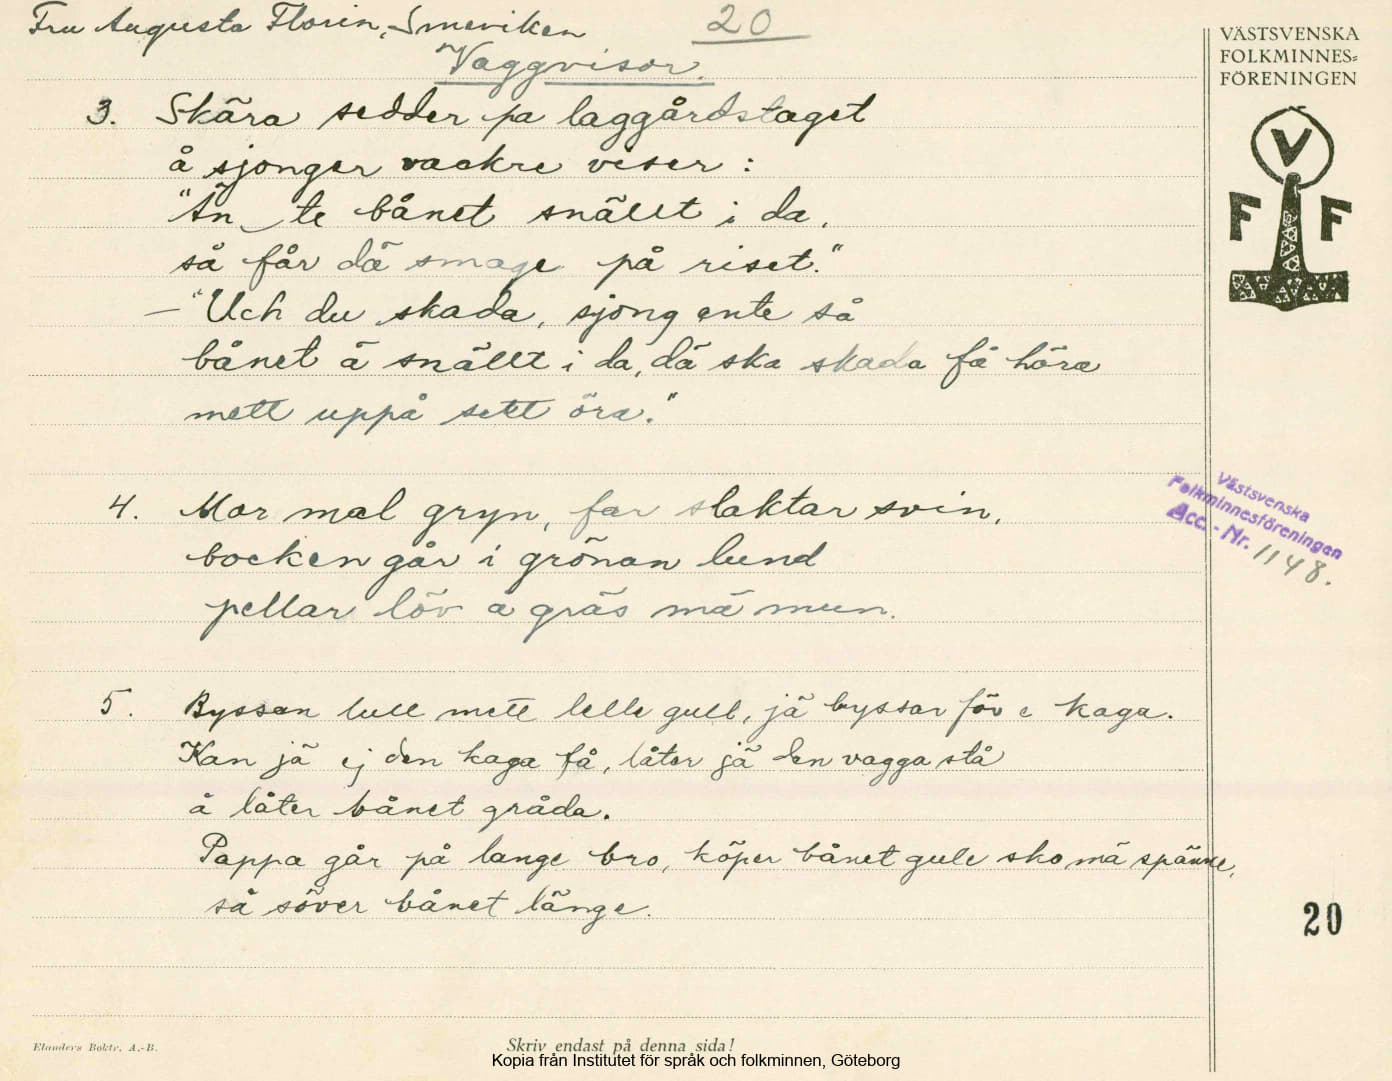 Fru Augusta Florin, Smeviken
20
Vaggvisor.
VÄSTSVENSKA
FOLKMINNES=
FÖRENINGEN
V
F F
3. Skära sedder pa laggårdstaget
å sjonger vackre viser :
"Än te bånet snällt i da,
så får dä smage på riset."
– "Uch du skada, sjong ente så
bånet ä snällt i da, dä ska skada få höra
mett uppå sett öra."
4. Mor mal gryn, far slaktar svin,
bocken går i grönan lund
pellar löv å gräs mä mun.
Västsvenska
Folkminnesföreningen
Acc. - Nr. 1148.
5. Byssan lull mett lelle gull, jä byssar för e kaga.
Kan jä ej den kaga få, låter jä den vagga stå
å låter bånet gråda.
Pappa går på lange bro, köper bånet gule sko mä spänne,
så söver bånet länge.
20
Elanders Boktr. A.-B.
Skriv endast på denna sida!
Kopia från Institutet för språk och folkminnen, Göteborg